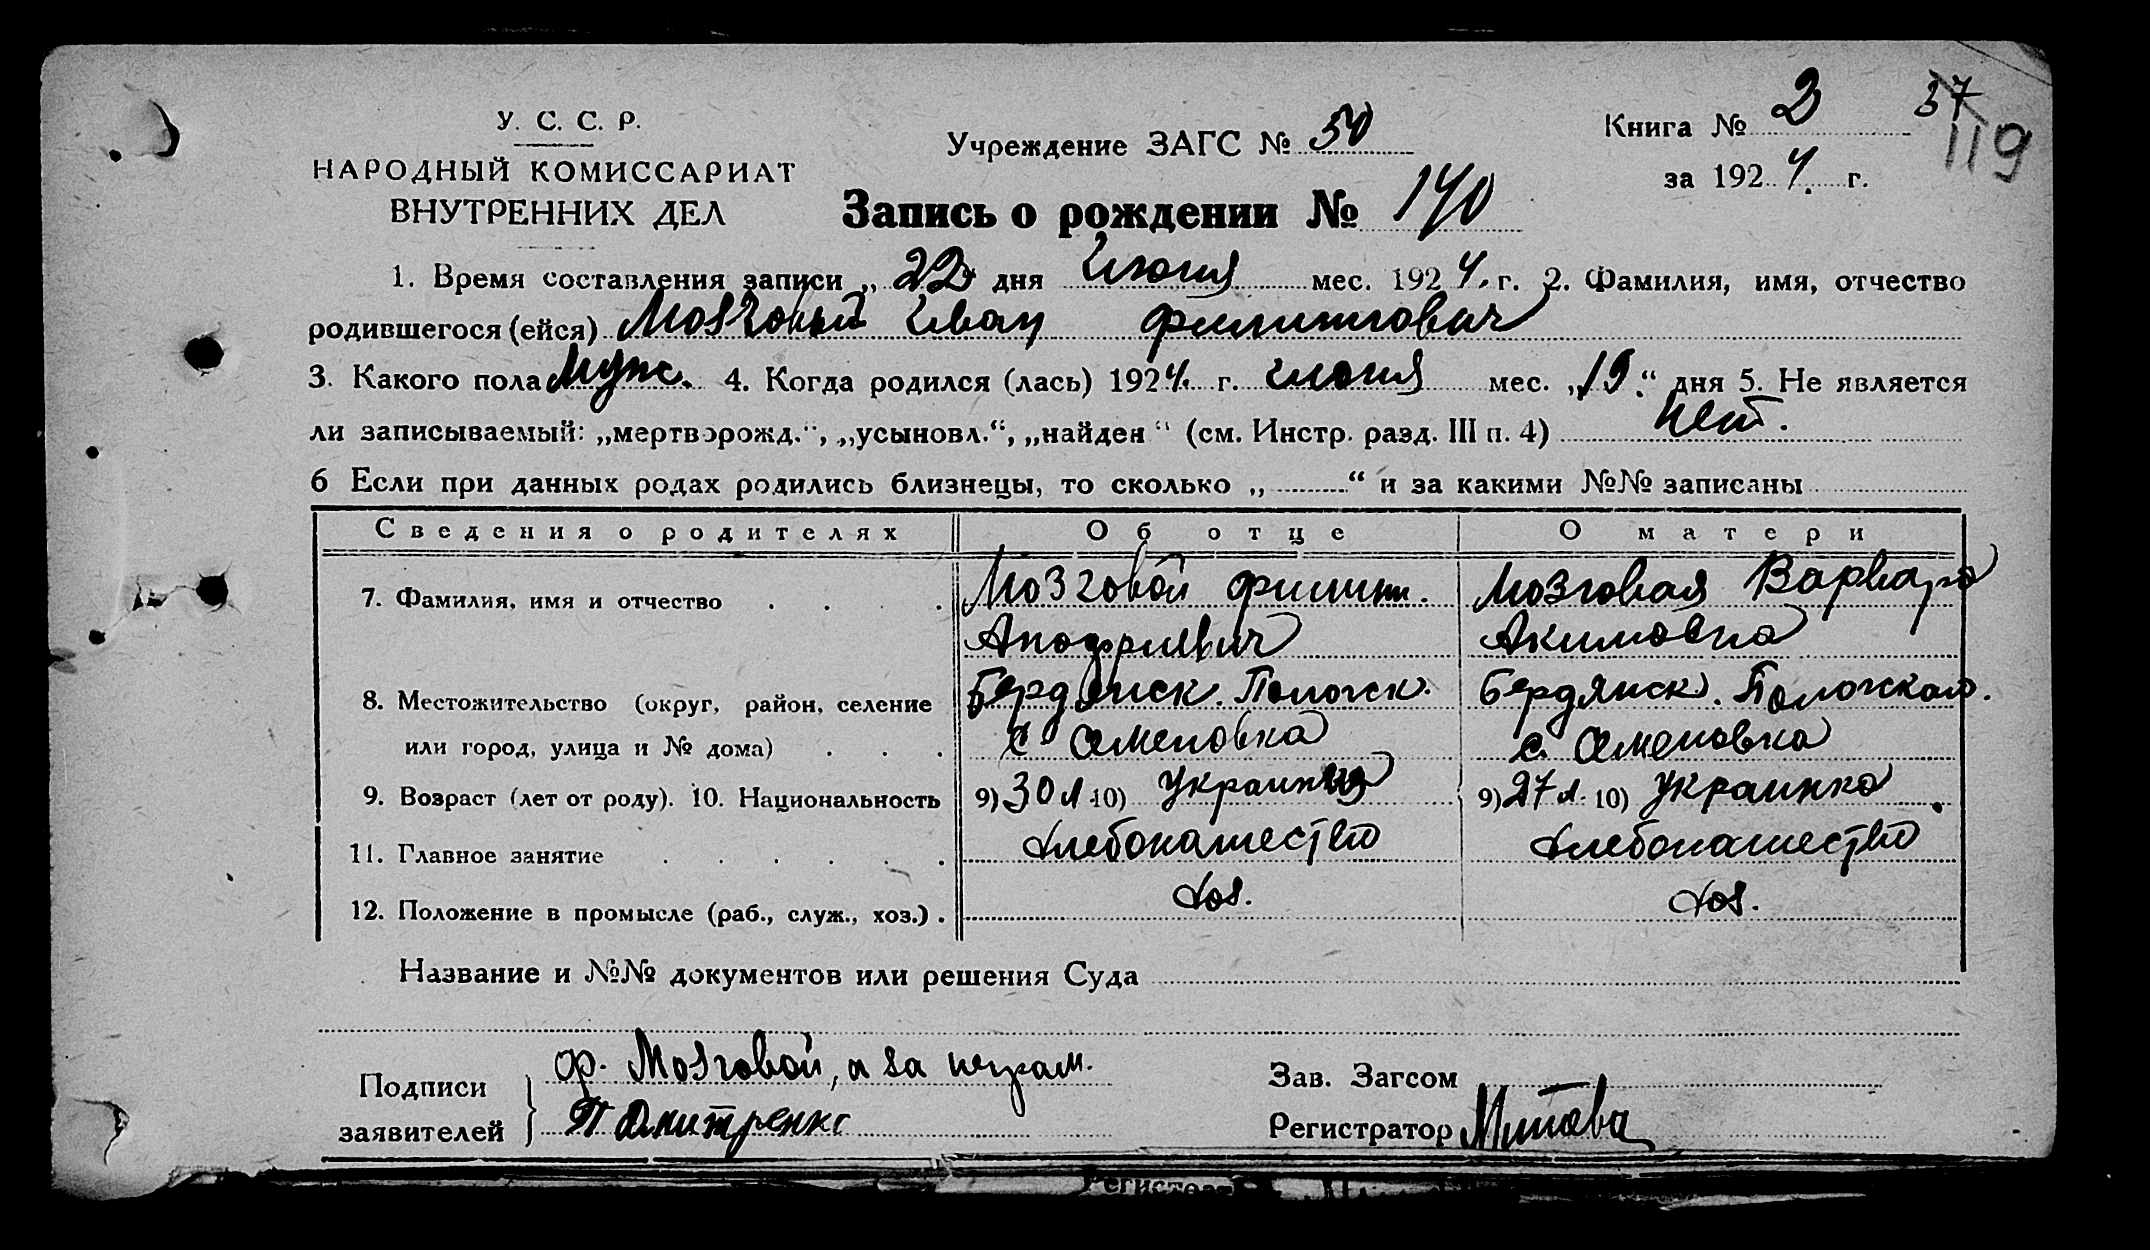 У. С. С. Р.
НАРОДНЫЙ КОМИССАРИАТ
ВНУТРЕННИХ ДЕЛ
Учреждение ЗАГС № 50
Книга № 2 37
119
за 1924. г.
Запись о рождении № 140
1. Время составления записи „ 22 дня Июня мес. 1924. г. 2. Фамилия, имя, отчество
родившегося (ейся) Мозговый Иван Филиппович
3. Какого пола Муж. 4. Когда родился (лась) 1924. г. июня мес. „19.“ дня 5. Не является
ли записываемый: „мертворожд.“, „усыновл.“, „найден“ (см. Инстр. разд. III п. 4) Нет.
6 Если при данных родах родились близнецы, то сколько „ “ и за какими №№ записаны
Сведения о родителях Об отце О матери
7. Фамилия, имя и отчество Мозговой Филип. Мозговая Варвара
Акимовна
8. Местожительство (округ, район, селение Бердянск. Пологск. Бердянск. Пологского.
или город, улица и № дома) с. Семеновка с. Семеновка
9. Возраст (лет от роду). 10. Национальность 9) 30 л. 10) 9) 27 л. 10) Украинка
11. Главное занятие Хлебопашество Хлебопашество
12. Положение в промысле (раб., служ., хоз.) . Хоз. Хоз.
Название и №№ документов или решения Суда
Подписи ф. Мозговой, а за неграм.
заявителей П Дмитренко
Зав. Загсом
Регистратор